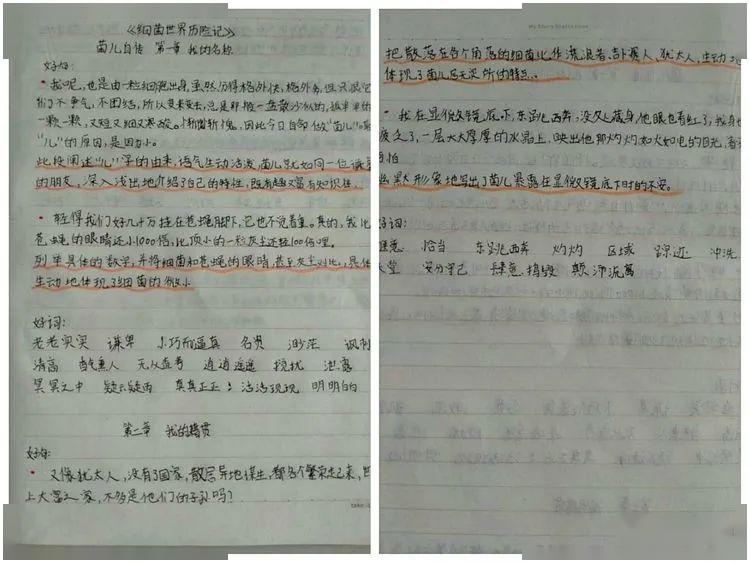 《细菌世界历险记》
菌儿自传 第一章 我的名称
好句:
·我呢,也是由一粒细胞出身,虽然分得格外快,格外多,但只恨它
们不争气,不团结,所以变来变去,总是那般一盘散沙似的,孤单单
一颗一颗,又短又细又寒酸。惭愧惭愧,因此今日自命做“菌儿”。
“儿”的原因,是因为小。
此段阐述“儿”字的由来,语气生动活泼,菌儿就如同一位
的朋友,深入浅出地介绍了自己的特性,既有趣又富有知识性。
·轻得我们好几十万挂在苍蝇脚下,它也不觉着重。真的,我比
苍蝇的眼睛还小1000倍,比顶小的一粒灰尘还轻100倍哩。
列举具体的数字,并将细菌和苍蝇的眼睛甚至灰尘对比,具体
生动地体现了细菌的微小
好词:
老老实实 谦卑 小巧而逼真 名贵 渺茫 讽刺
清高 无从查考 逍逍遥遥 搅扰 泄露
冥冥之中 疑云疑雨 真真正正 活活现现 明明白白
第二章 我的籍贯
好句:
·又像犹太人,没有了国家,散居异地谋生,都各个繁荣起来,世
上大富之家,不多是他们的子孙吗?
take
My Story Starts Here
把散落在各个角落的细菌比作流浪者、吉卜赛人、犹太人,生动地
体现了菌儿居无定所的特点。
·我在显微镜底下,东跑西奔,没处藏身,他眼也看红了,我身也
疲乏了,一层大大厚厚的水晶上,映出他那灼灼如火如电的目光,着
可怕
幽默形象地写出了菌儿暴露在显微镜底下时的不安。
好词:
恰当 东跑西奔 灼灼 区域 踪迹 冲洗
天堂 安分守己 肆意 捣毁 颠沛流离